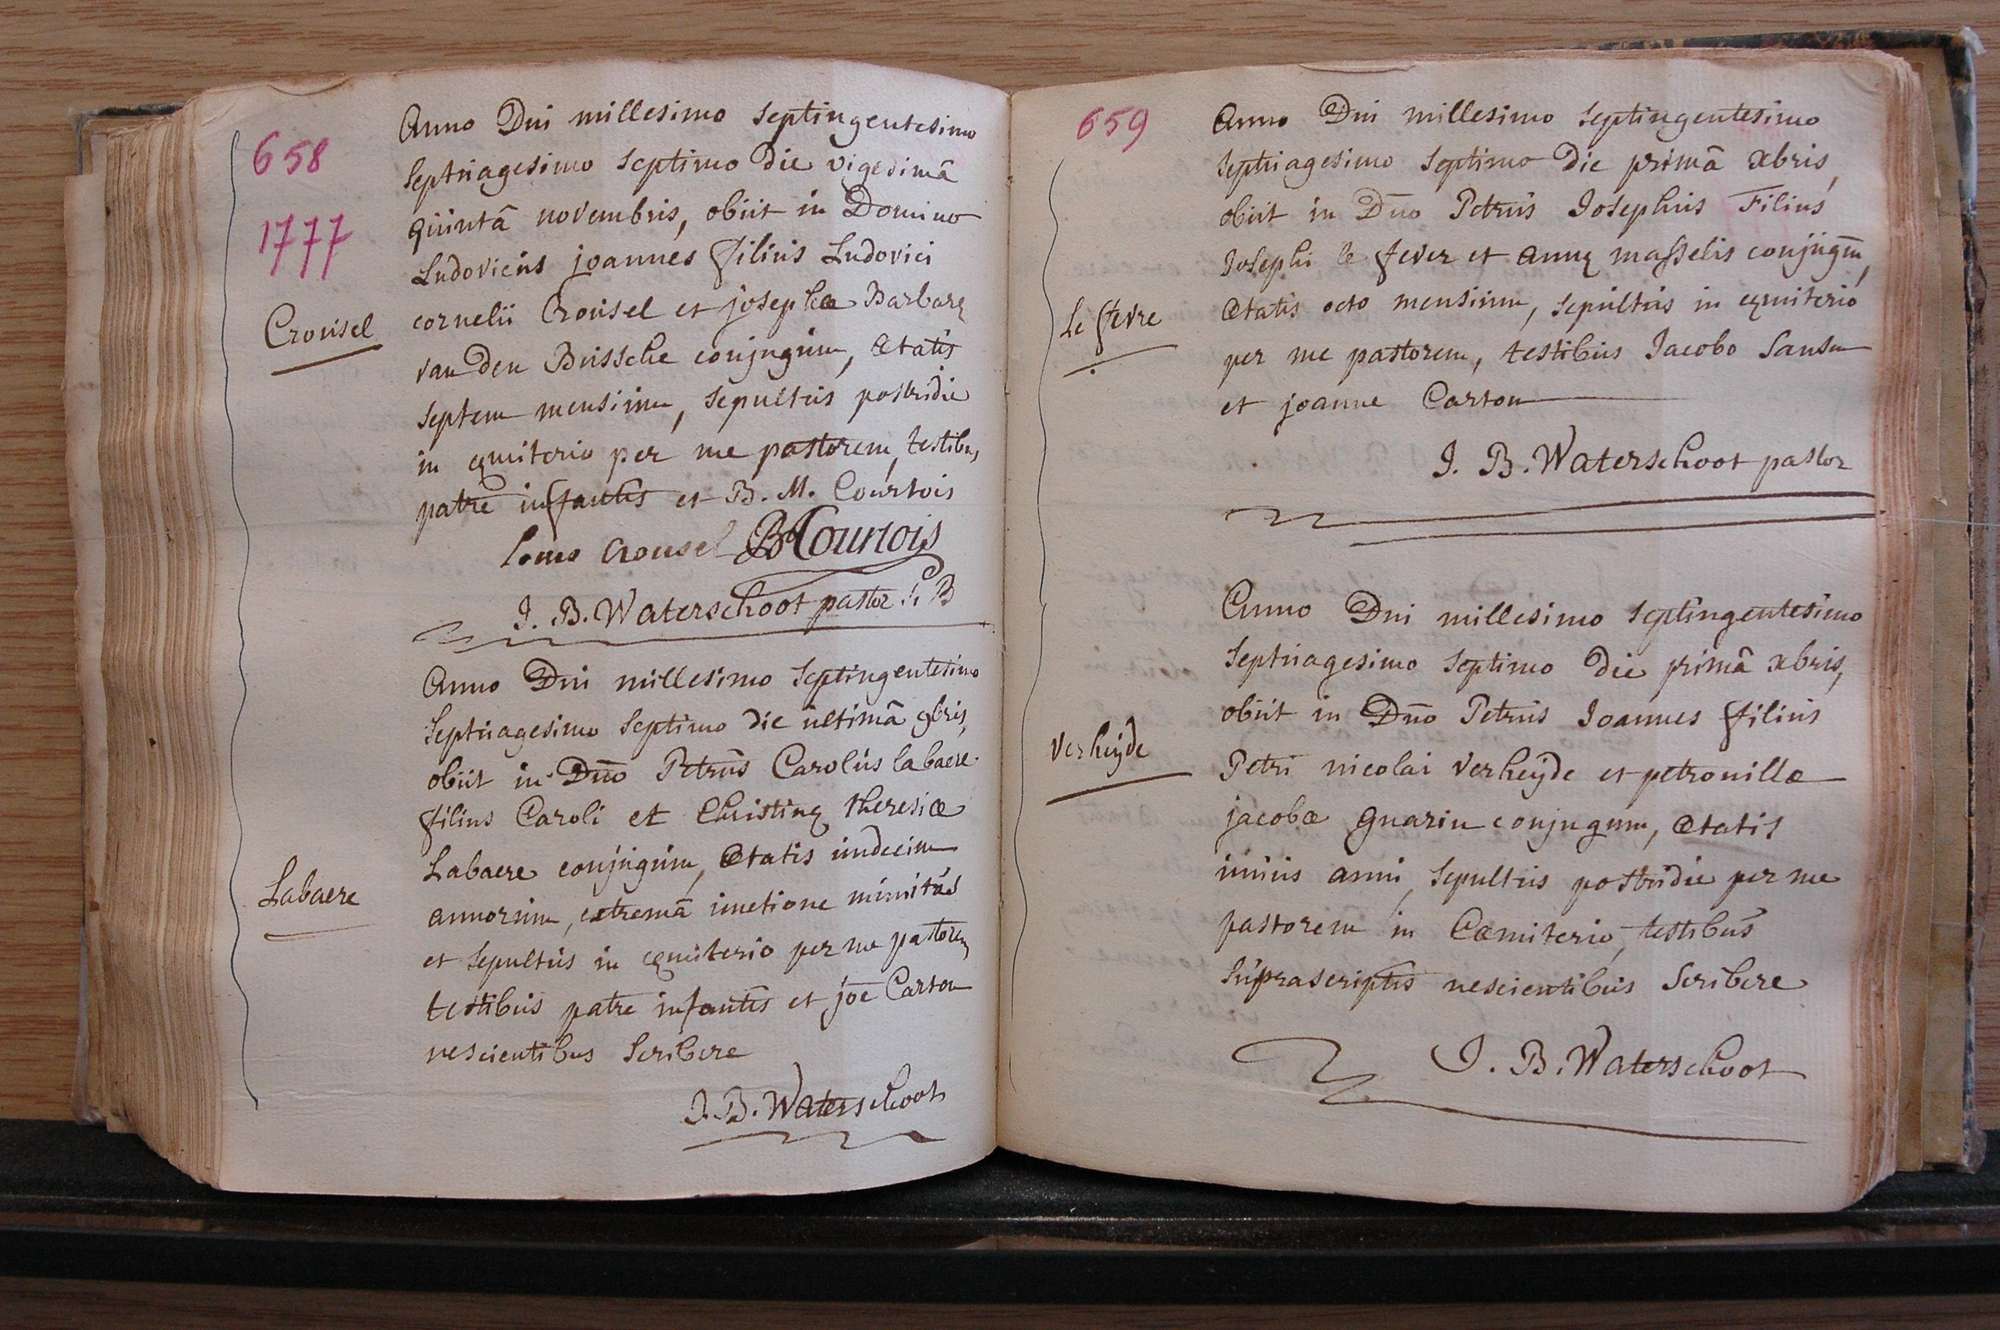 658
1777
Anno Dni millesimo septingentesimo
septuagesimo septimo die vigesimâ
quintâ novembris, obiit in Domino
Ludovicus joannes filius Ludovici
Crousel
cornelii Crousel et josephæ Barbaræ
van den Bussche conjugum, ætatis
septem mensium, sepultus postridie
in cæmiterio per me pastorem, testibus
patre infantis et B. M. Courtois
Louis crousel BMCourtois
J. B. Waterschoot pastor S. B
Anno Dni millesimo septingentesimo
septuagesimo septimo die ultimâ 9bris,
obiit in Dno Petrus Carolus labaere
filius Caroli et Christinæ theresiæ
Labaere
Labaere conjugum, ætatis undecim
annorum, extremâ unctione munitus
et sepultus in cæmiterio per me pastorem
testibus patre infantis et joe Carton
nescientibus scribere
J. B. Waterschoot
659
Anno Dni millesimo septingentesimo
septuagesimo septimo die primâ xbris,
obiit in Dno Petrus Josephus Filius
Josephi le fever et annæ masselis conjugum,
Le fevre
ætatis octo mensium, sepultus in cæmiterio
per me pastorem, testibus Jacobo Sansen
et joanne Carton
J. B. Waterschoot pastor
Anno Dni millesimo septingentesimo
septuagesimo septimo die primâ xbris,
obiit in Dno Petrus Joannes filius
Verheÿde
Petri nicolai verheÿde et petronillæ
jacobæ guarin conjugum, ætatis
unius anni, sepultus postridie per me
pastorem in Cæmiterio, testibus
suprascriptis nescientibus scribere
J. B. Waterschoot